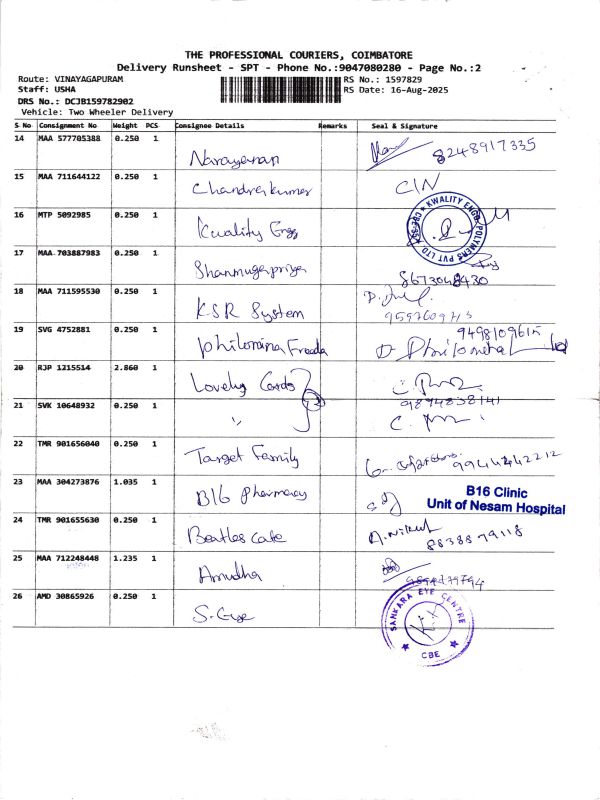 THE PROFESSIONAL COURIERS, COIMBATORE
Delivery Runsheet - SPT - Phone No.:9047080280 - Page No.:2
Route: VINAYAGAPURAM RS No.: 1597829
Staff: USHA RS Date: 16-Aug-2025
DRS No.: DCJB159782902
Vehicle: Two Wheeler Delivery
S No Consignment No Weight PCS Consignee Details Remarks Seal & Signature
14 MAA 577705388 0.250 1 Narayanan 8248917335
15 MAA 711644122 0.250 1 Chandrakumar C/N
16 MTP 5092985 0.250 1 Kwality Engg KWALITY ENGG POLYMERS PVT LTD
17 MAA 703887983 0.250 1 Shanmugapriya 8673048430
18 MAA 711595530 0.250 1 KSR System
19 SVG 4752881 0.250 1 philomina Freeda 9498109615
20 RJP 1215514 2.860 1 Lovely Cards 9894838141
21 SVK 10648932 0.250 1 ,,
22 TMR 901656040 0.250 1 Target Family 9944242212
23 MAA 304273876 1.035 1 B16 Pharmacy B16 Clinic
Unit of Nesam Hospital
24 TMR 901655630 0.250 1 Beatles Cafe A.Nikul
8838879118
25 MAA 712248448 1.235 1 Anudha
26 AMD 30865926 0.250 1 S. Eye SANKARA EYE CENTRE
CBE